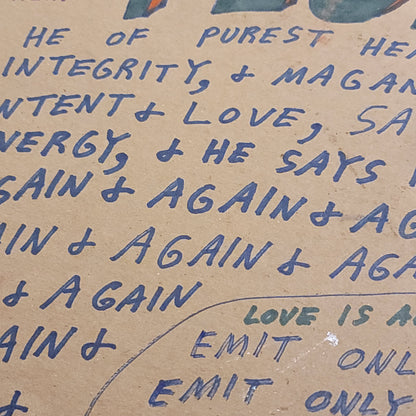 HE OF PUREST HEA
INTEGRITY, & MAGAN
NTENT & LOVE, SA
NERGY, & HE SAYS
GAIN & AGAIN & AG
AIN & AGAIN & AGA
& AGAIN
AIN &
LOVE IS A
EMIT ONL
EMIT ONLY